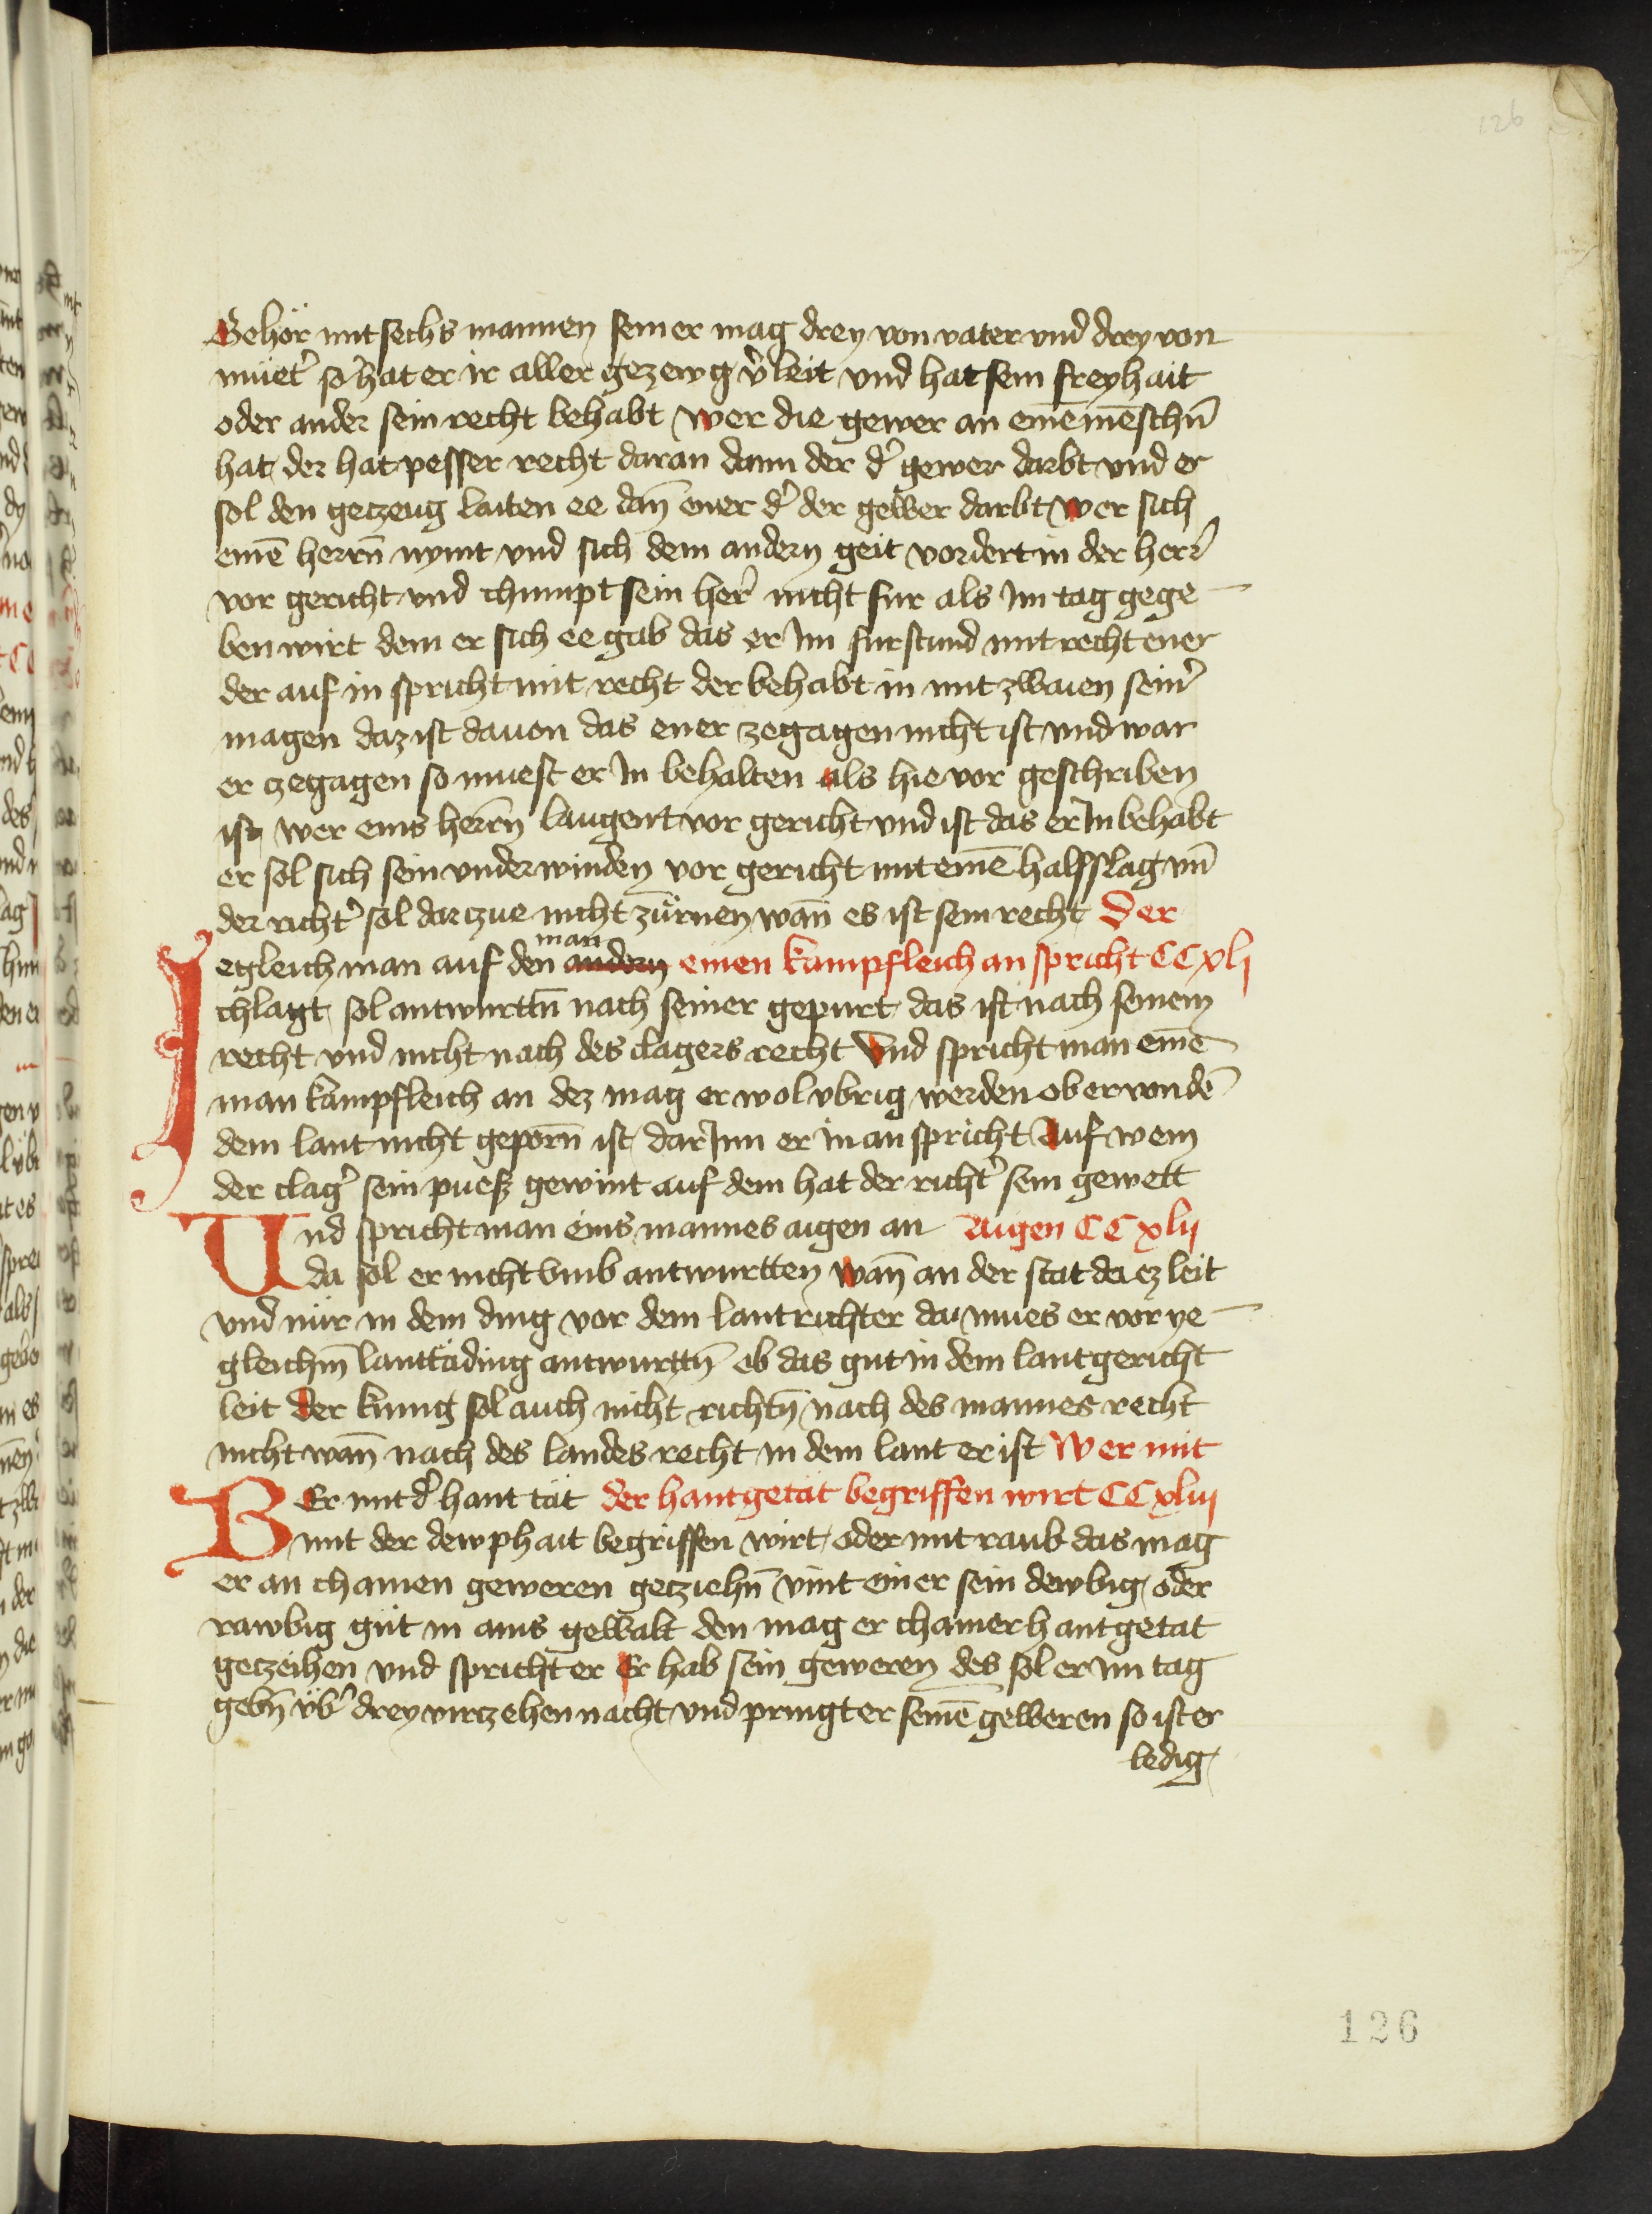 126
Gehör mit sechs mannen seiner mag drey von vater vnd drey von
müet̾ so hat er ir aller gezewg v̾leit vnd hat sein freyhait
oder ander sein recht behabt wer die gewer an eine mēschn̄
hat der hat pesser recht daran dann der d̾ gewer darbt vnd er
sol den geczeug laiten ee dan̄ ener d̾ der gewer darbt wer sich
einē herrn̄ nymt vnd sich dem andern geit vordert in der herr̾
vor gericht vnd chumpt sein her̾ nicht fur als Im tag gege
ben wirt dem er sich ee gab das er Im fur stund mit recht ener
der auf in spricht mit recht der behabt in mit zwaien sein̾
magen daz ist dauon das ener zegagen nicht ist vnd war
er zegagen so muest er In behalten als hie vor geschriben
ist wer eins herrn̄ laugent vor gericht vnd ist das er In behabt
er sol sich sein vnderwinden vor gericht mit einē halsslag vn̄
der richt̾ sol darczue nicht zürnen wan̄ es ist sein recht Der
Iegleich man auf den man andern einen kampfleich an spricht CCxli
chlagt sol antwurttn̄ nach seiner gepurt das ist nach seinem
recht vnd nicht nach des clagers recht Vnd spricht man einē
man kampfleich an dez mag er wol vbrig werden ob er von dē
dem lant nicht geporn̄ ist dar Inn er in an spricht Auf wem
der clag̾ sein puess gewint auf dem hat der richt̾ sein gewett
Und spricht man eins mannes aigen an Aigen CCxlii
da sol er nicht vmb antwurtten wan̄ an der stat da ez leit
vnd nür in dem ding vor dem lantrichter da mues er vor ye
gleichm̄ lanttäding antwurttn̄ ob das gut in dem lantgericht
leit der kunig sol auch nicht richtn̄ nach des mannes recht
nicht wan̄ nach des landes recht in dem lant er ist Wer mit
WEr mit d̾ hant tät der hantgetät begriffen wirt CCxliii
mit der dewphait begriffen wirt oder mit raub das mag
er an chainen geweren gecziehn̄ vint einer sein dewbig oder
rawbig gut in ains gewalt den mag er chainer hantgetat
geczeihen vnd spricht er Er hab sein geweren des sol er im tag
gebn̄ vb̾ drey virczehen nacht vnd pringt er seinē geweren so ist er
ledig
126